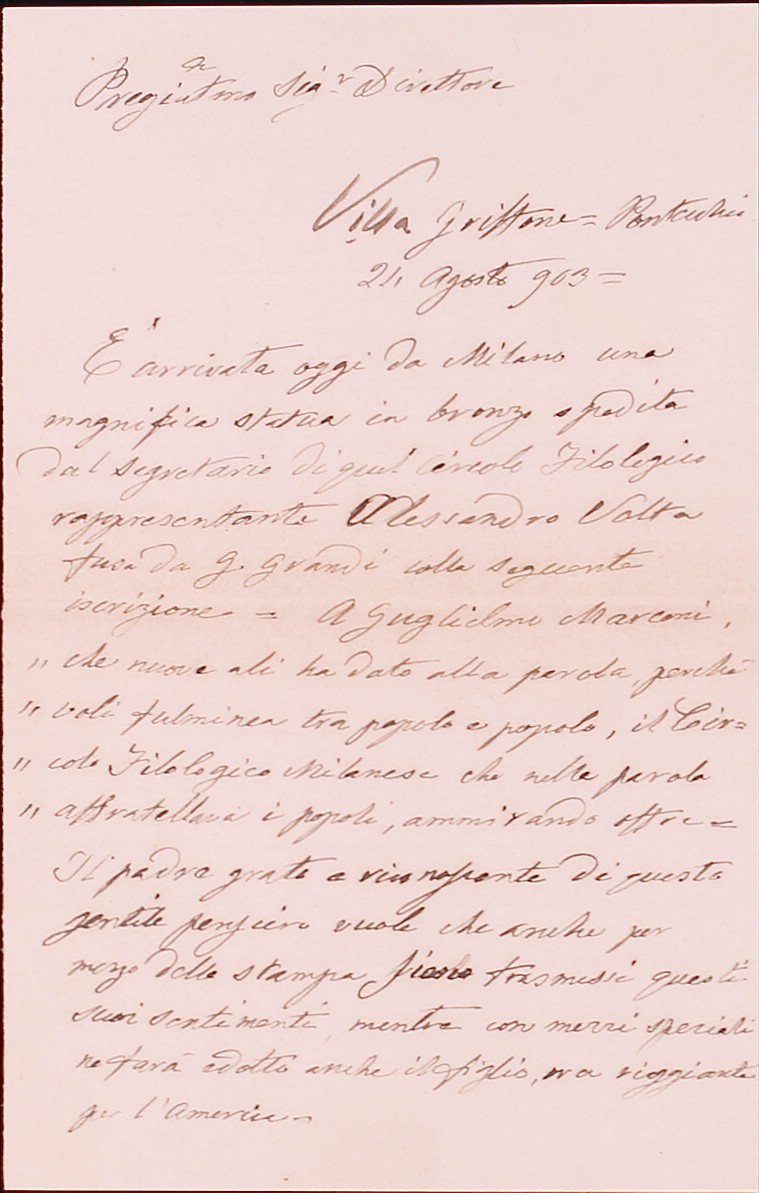 Pregiatmo Sigr Direttore
Villa Griffone = Pontecchio
24 Agosto 903 =
È arrivata oggi da Milano una
magnifica statua in bronzo spedita
dal segretario di quel Circolo Filologico
rappresentante Alessandro Volta
fusa da G. Grandi colla seguente
iscrizione = A Guglielmo Marconi,
„ che nuove ali ha dato alla parola, perchè
„ voli fulminea tra popolo e popolo, il Cir=
„ colo Filologico Milanese che nella parola
„ affratellava i popoli, ammirando offre =
Il padre grato e riconoscente di questo
gentile pensiero vuole che anche per
mezzo della stampa siano trasmessi questi
suoi sentimenti, mentre con mezzi speciali
ne farà edotto anche il figlio, ora viaggiante
per l'America =